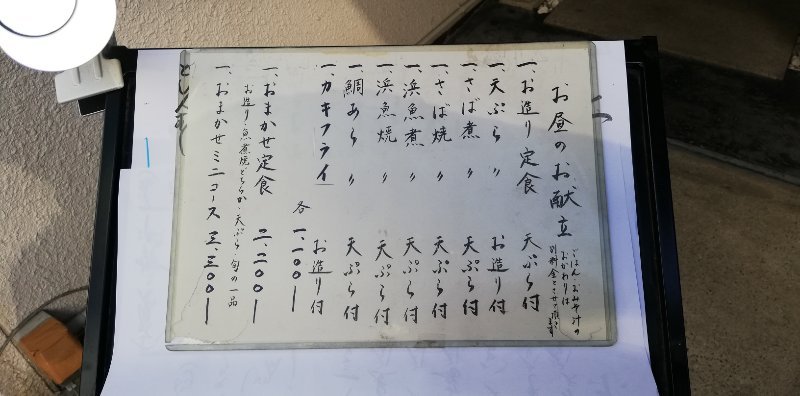 お昼のお献立
ごはん、おみそ汁の
おかわりは
別料金とさせて頂きます
一、お造り定食 天ぷら付
一、天ぷら 〃 お造り付
一、さば煮 〃 天ぷら付
一、さば焼 〃 天ぷら付
一、浜魚煮 〃 天ぷら付
一、浜魚焼 〃 天ぷら付
一、鯛あら 〃 天ぷら付
一、カキフライ 〃 お造り付
各 一、一〇〇ー
一、おまかせ定食 二、二〇〇ー
お造り・魚煮焼どちらか・天ぷら 旬の一品
一、おまかせミニコース 三、三〇〇ー